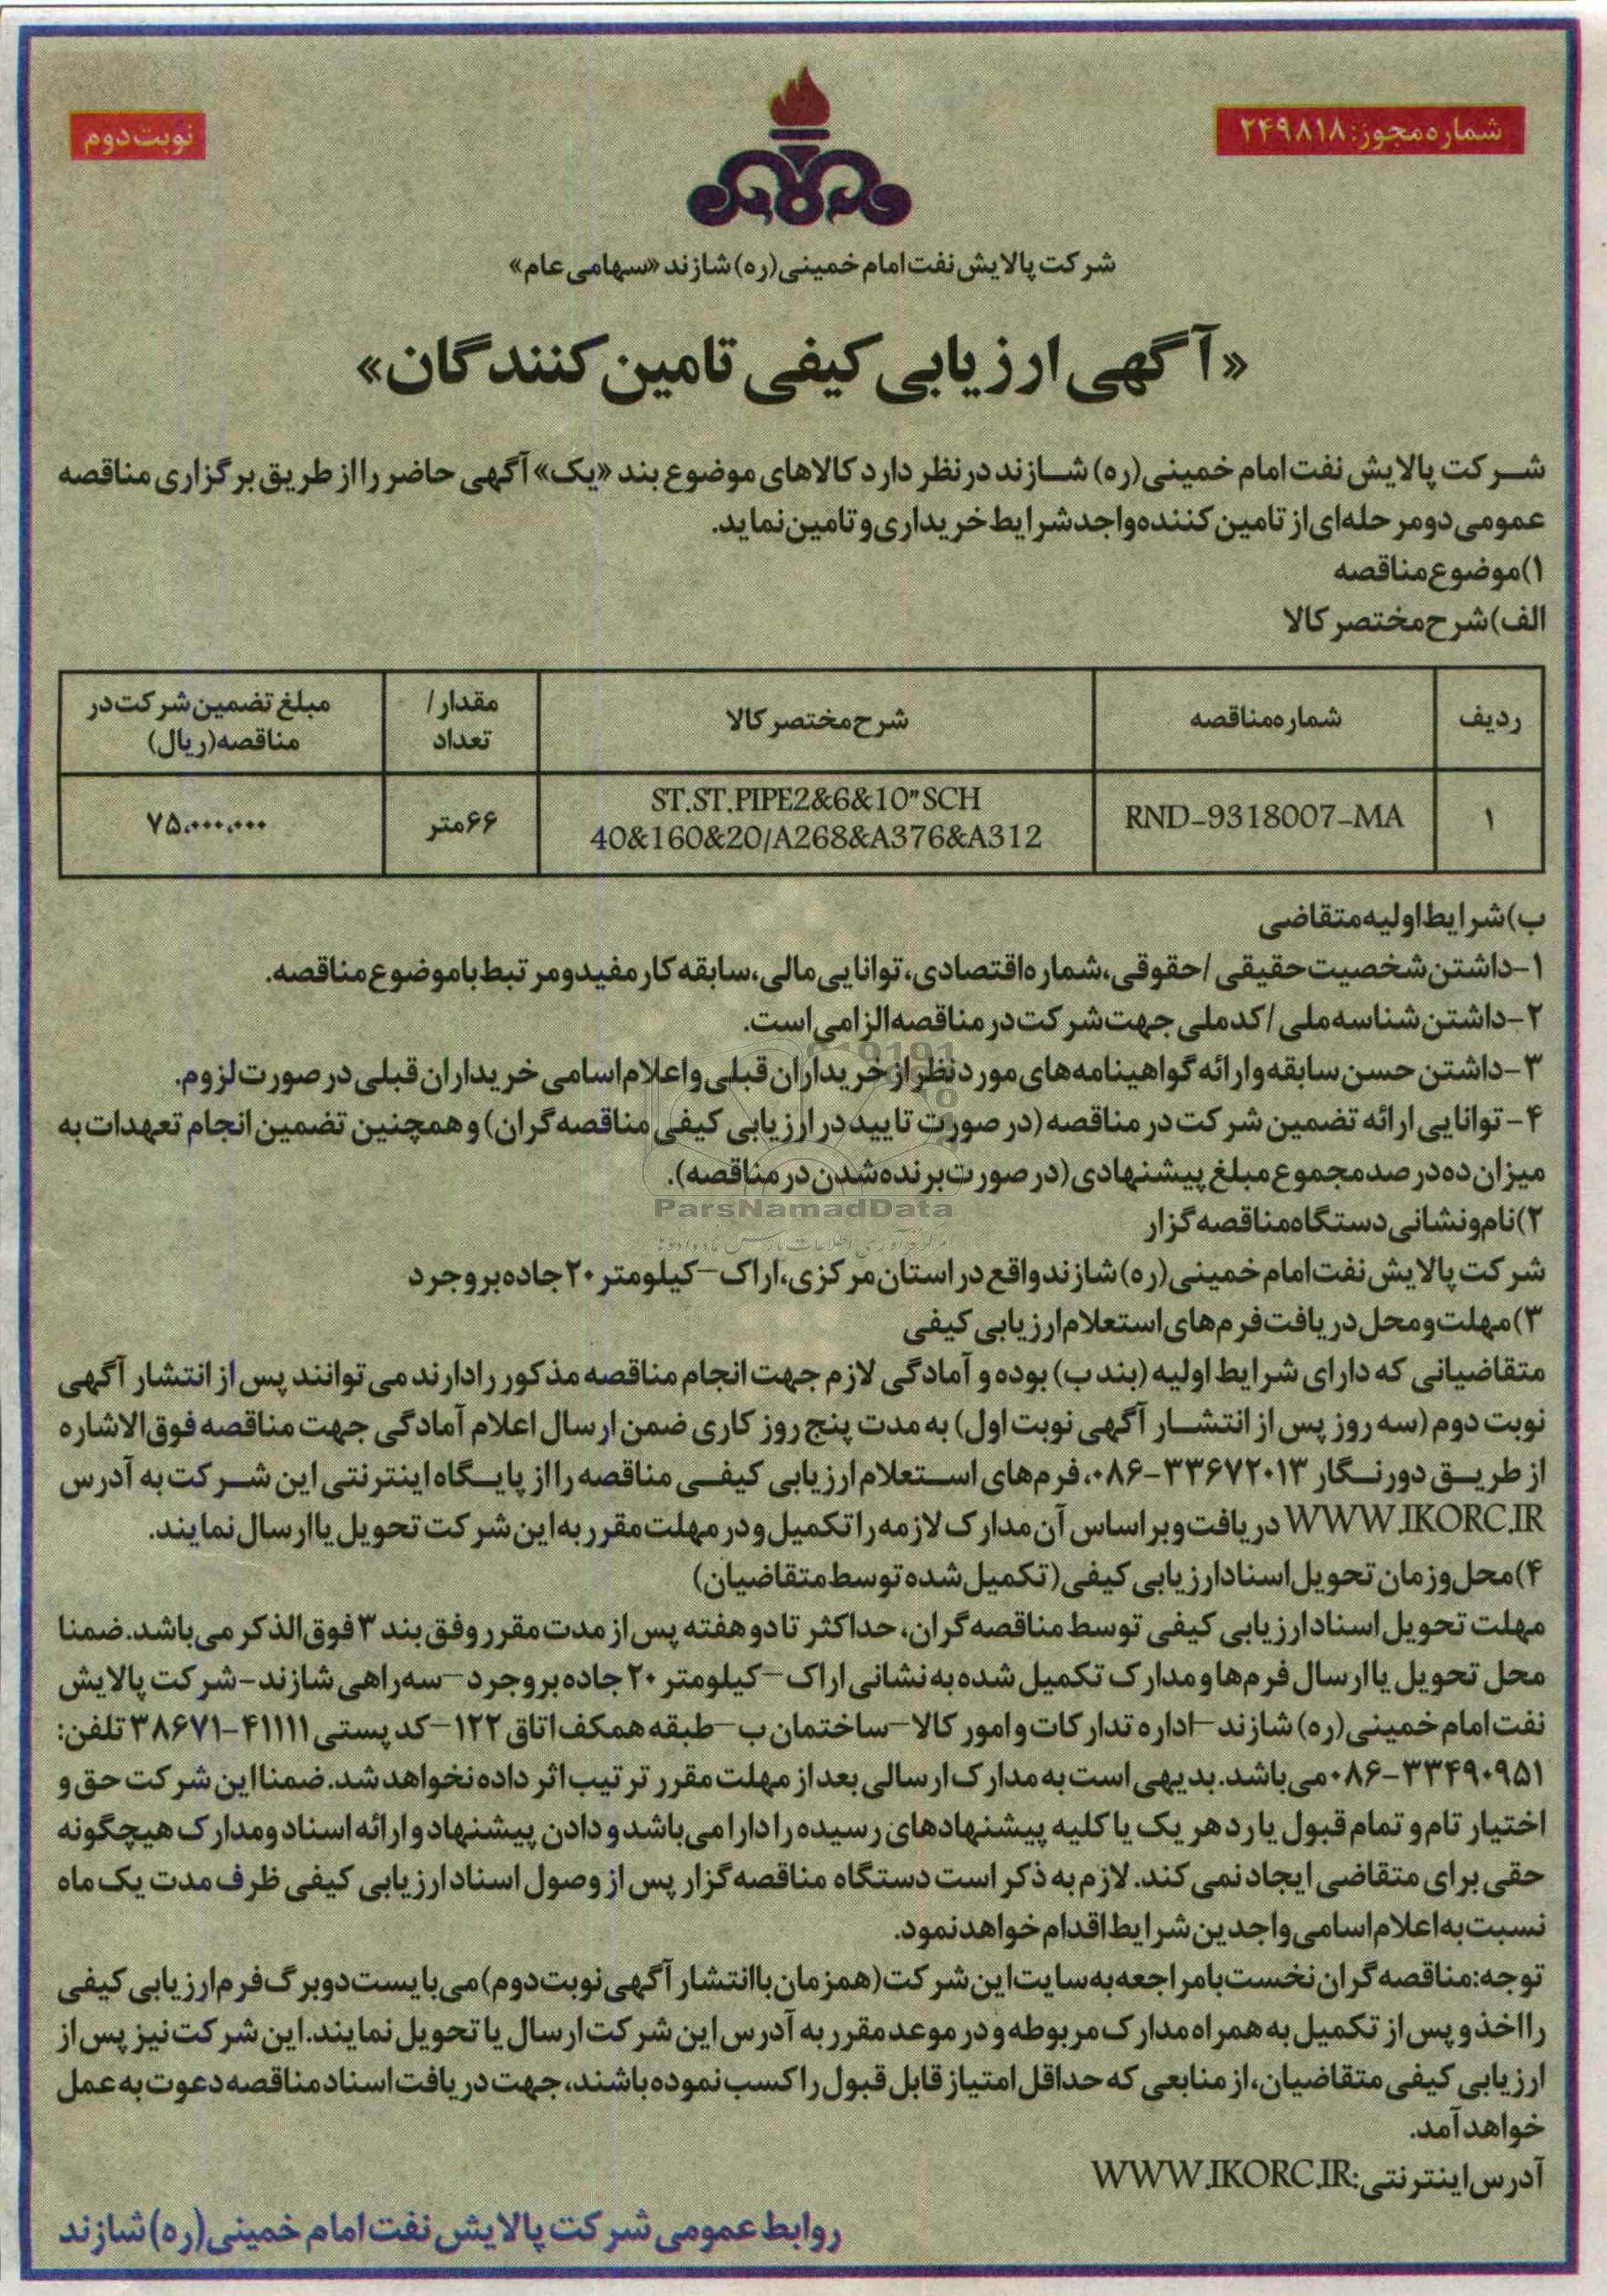 شماره مجوز: ۲۴۹۸۱۸
نوبت دوم
شرکت پالایش نفت امام خمینی (ره) شازند «سهامی عام»
«آگهی ارزیابی کیفی تامین کنندگان»
شرکت پالایش نفت امام خمینی (ره) شازند در نظر دارد کالاهای موضوع بند «یک» آگهی حاضر را از طریق برگزاری مناقصه
عمومی دو مرحله‌ای از تامین کننده واجد شرایط خریداری و تامین نماید.
۱) موضوع مناقصه
الف) شرح مختصر کالا
ردیف
شماره مناقصه
شرح مختصر کالا
مقدار/
تعداد
مبلغ تضمین شرکت در
مناقصه (ریال)
۱
RND-9318007-MA
ST.ST.PIPE2&6&10"SCH
40&160&20/A268&A376&A312
۶۶ متر
۷۵،۰۰۰،۰۰۰
ب) شرایط اولیه متقاضی
۱- داشتن شخصیت حقیقی / حقوقی، شماره اقتصادی، توانایی مالی، سابقه کار مفید و مرتبط با موضوع مناقصه.
۲- داشتن شناسه ملی / کد ملی جهت شرکت در مناقصه الزامی است.
۳- داشتن حسن سابقه و ارائه گواهینامه‌های مورد نظر از خریداران قبلی و اعلام اسامی خریداران قبلی در صورت لزوم.
۴- توانایی ارائه تضمین شرکت در مناقصه (در صورت تایید در ارزیابی کیفی مناقصه گران) و همچنین تضمین انجام تعهدات به
میزان ده درصد مجموع مبلغ پیشنهادی (در صورت برنده شدن در مناقصه).
ParsNamadData
۲) نام و نشانی دستگاه مناقصه گزار
شرکت پالایش نفت امام خمینی (ره) شازند واقع در استان مرکزی، اراک - کیلومتر ۲۰ جاده بروجرد
۳) مهلت و محل دریافت فرم‌های استعلام ارزیابی کیفی
متقاضیانی که دارای شرایط اولیه (بند ب) بوده و آمادگی لازم جهت انجام مناقصه مذکور را دارند می توانند پس از انتشار آگهی
نوبت دوم (سه روز پس از انتشار آگهی نوبت اول) به مدت پنج روز کاری ضمن ارسال اعلام آمادگی جهت مناقصه فوق الاشاره
از طریق دورنگار ۳۳۶۷۲۰۱۳-۰۸۶، فرم‌های استعلام ارزیابی کیفی مناقصه را از پایگاه اینترنتی این شرکت به آدرس
WWW.IKORC.IR دریافت و بر اساس آن مدارک لازمه را تکمیل و در مهلت مقرر به این شرکت تحویل یا ارسال نمایند.
۴) محل و زمان تحویل اسناد ارزیابی کیفی (تکمیل شده توسط متقاضیان)
مهلت تحویل اسناد ارزیابی کیفی توسط مناقصه گران، حداکثر تا دو هفته پس از مدت مقرر وفق بند ۳ فوق الذکر می باشد. ضمنا
محل تحویل یا ارسال فرم‌ها و مدارک تکمیل شده به نشانی اراک - کیلومتر ۲۰ جاده بروجرد - سه راهی شازند - شرکت پالایش
نفت امام خمینی (ره) شازند - اداره تدارکات و امور کالا - ساختمان ب - طبقه همکف اتاق ۱۲۲ - کد پستی ۴۱۱۱۱-۳۸۶۷۱ تلفن:
۳۳۴۹۰۹۵۱-۰۸۶ می باشد. بدیهی است به مدارک ارسالی بعد از مهلت مقرر ترتیب اثر داده نخواهد شد. ضمنا این شرکت حق و
اختیار تام و تمام قبول یا رد هر یک یا کلیه پیشنهادهای رسیده را دارا می باشد و دادن پیشنهاد و ارائه اسناد و مدارک هیچگونه
حقی برای متقاضی ایجاد نمی کند. لازم به ذکر است دستگاه مناقصه گزار پس از وصول اسناد ارزیابی کیفی ظرف مدت یک ماه
نسبت به اعلام اسامی واجدین شرایط اقدام خواهد نمود.
توجه: مناقصه گران نخست با مراجعه به سایت این شرکت (همزمان با انتشار آگهی نوبت دوم) می بایست دو برگ فرم ارزیابی کیفی
را اخذ و پس از تکمیل به همراه مدارک مربوطه و در موعد مقرر به آدرس این شرکت ارسال یا تحویل نمایند. این شرکت نیز پس از
ارزیابی کیفی متقاضیان، از منابعی که حداقل امتیاز قابل قبول را کسب نموده باشند، جهت دریافت اسناد مناقصه دعوت به عمل
خواهد آمد.
آدرس اینترنتی: WWW.IKORC.IR
روابط عمومی شرکت پالایش نفت امام خمینی (ره) شازند